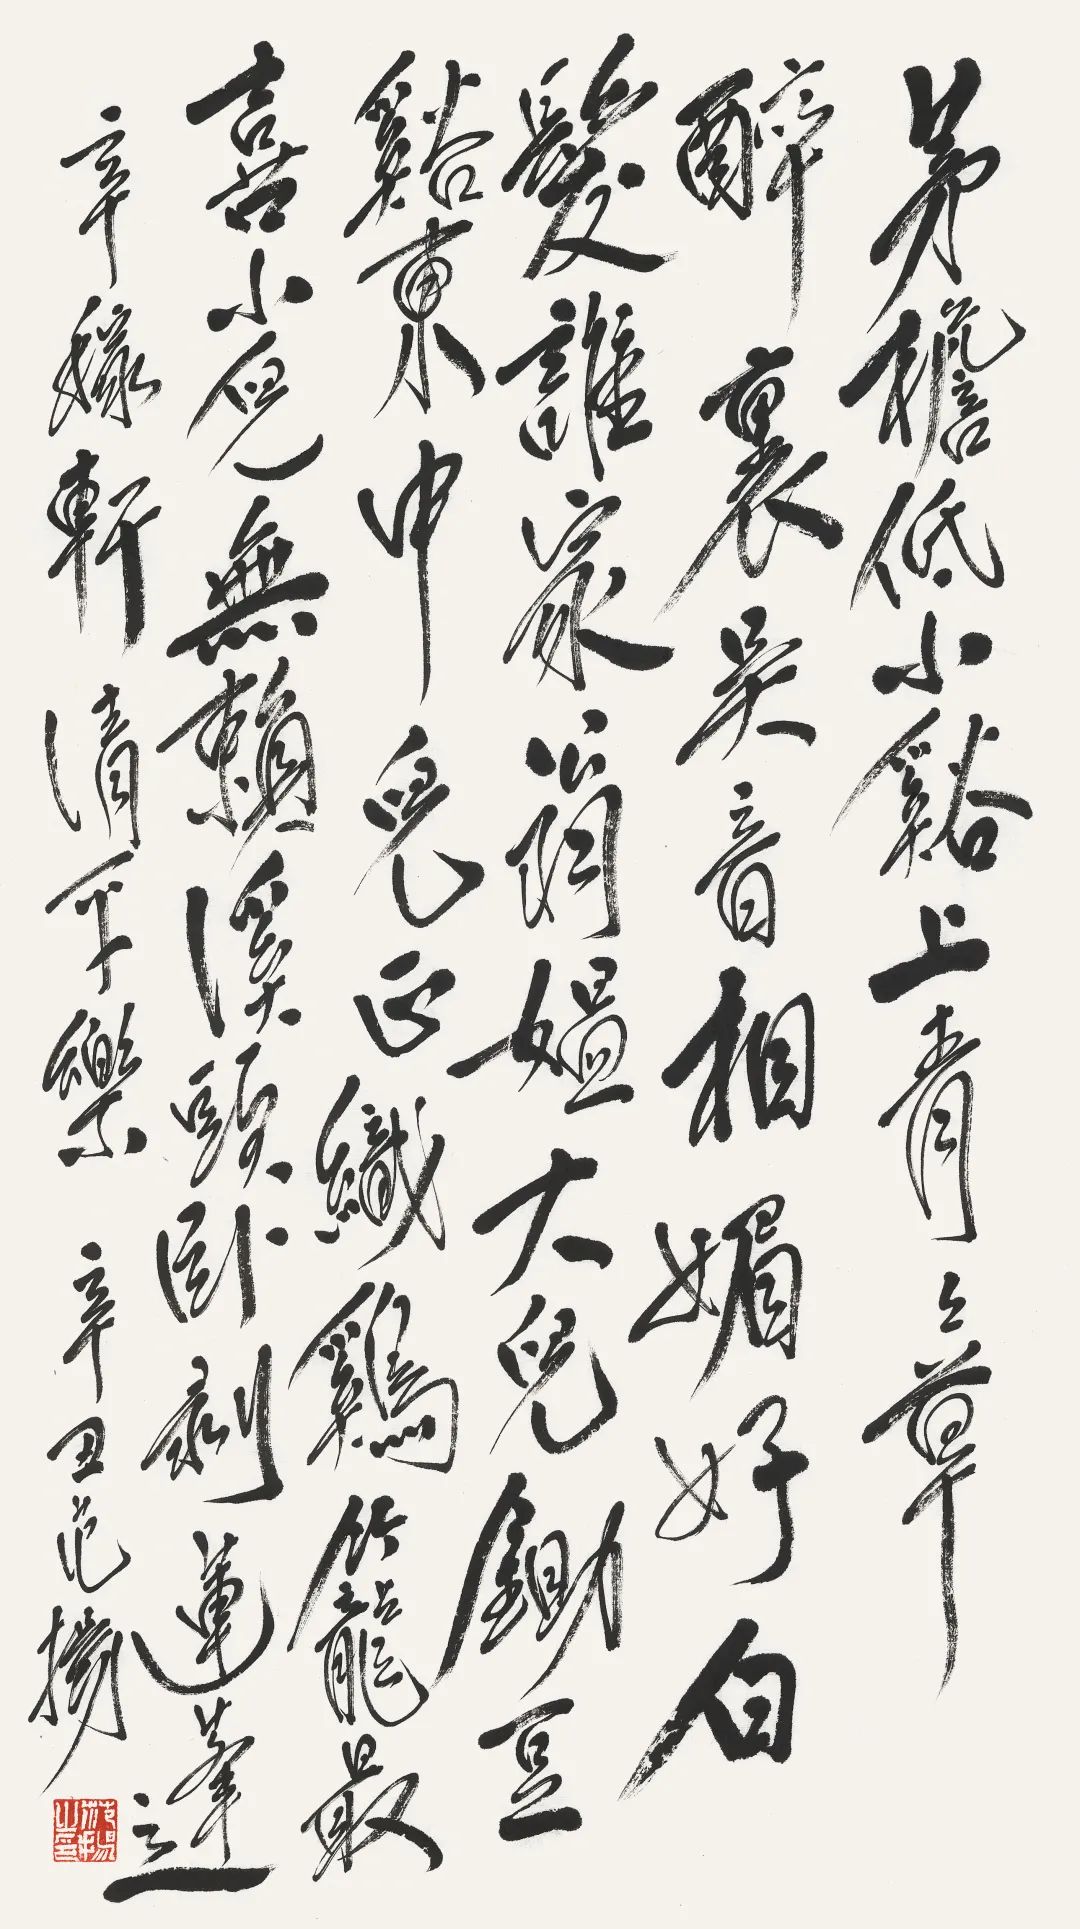 茅檐低小谿上青々草
醉裏吴音相媚好白
髮誰家翁媪大兒鋤豆
谿東中兒正織鷄籠最
喜小兒無賴溪頭卧剥蓮蓬
辛稼軒清平樂 辛丑范揚